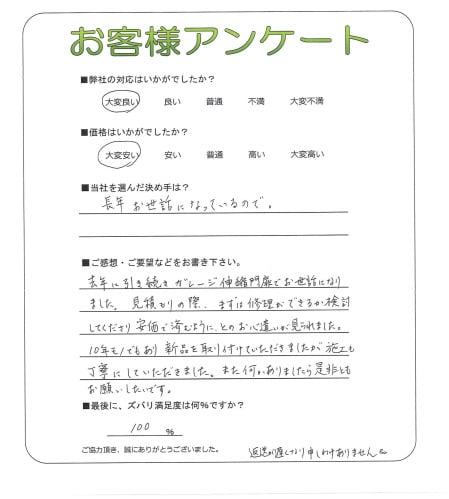 お客様アンケート
■弊社の対応はいかがでしたか？
大変良い 良い 普通 不満 大変不満
■価格はいかがでしたか？
大変安い 安い 普通 高い 大変高い
■当社を選んだ決め手は？
長年お世話になっているので。
■ご感想・ご要望などをお書き下さい。
去年に引き続きガレージ伸縮門扉でお世話になり
ました。見積もりの際、まずは修理ができるか検討
してくださり安価で済むように、とのお心遣いが見られました。
10年モノでもあり新品を取り付けていただきましたが施工も
丁寧にしていただきました。また何かありましたら是非とも
お願いしたいです。
■最後に、ズバリ満足度は何％ですか？
100 ％
ご協力頂き、誠にありがとうございました。
返送が遅くなり申しわけありません